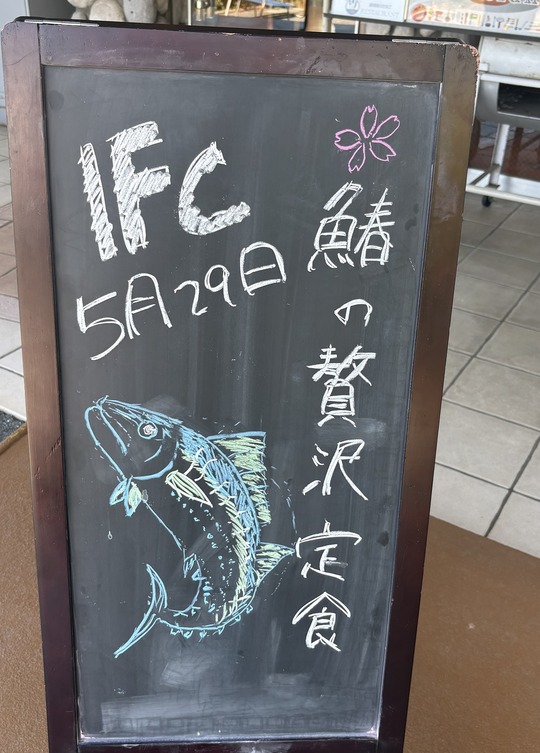 IFC
5月29日
鰆の贅沢定食